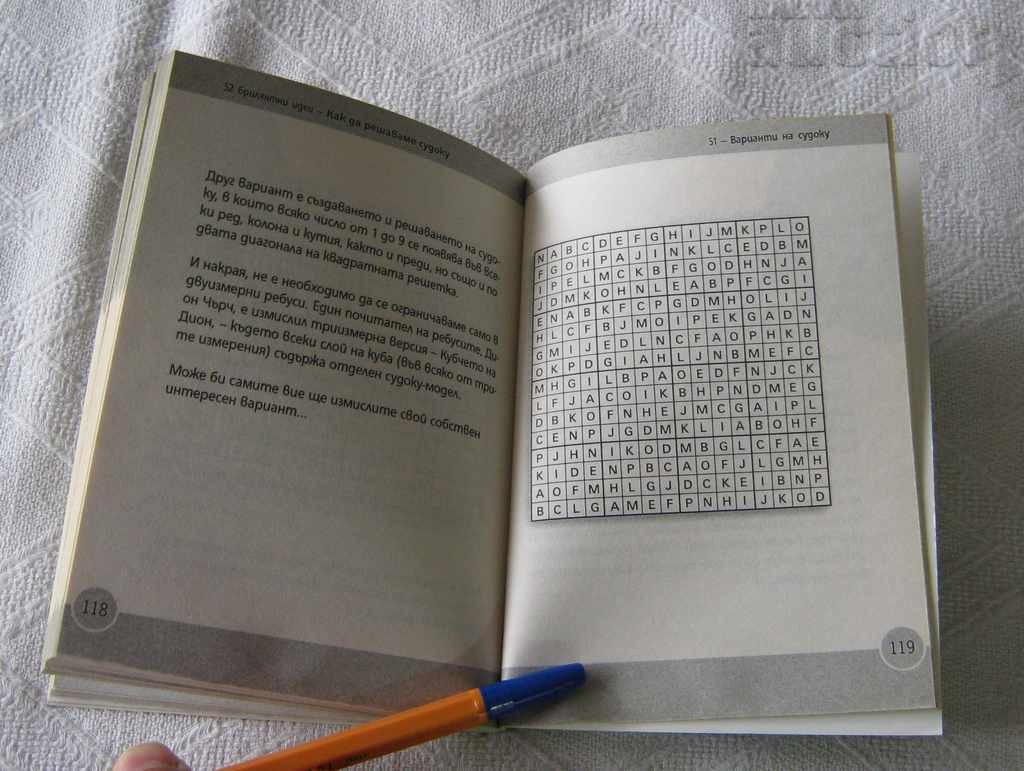 52 брилянтни идеи – Как да решаваме судоку
Друг вариант е създаването и решаването на судо-
ку, в които всяко число от 1 до 9 се появява във все-
ки ред, колона и кутия, както и преди, но също и по
двата диагонала на квадратната решетка.
И накрая, не е необходимо да се ограничаваме само в
двуизмерни ребуси. Един почитател на ребусите, Ди-
он Чърч, е измислил триизмерна версия – Кубчето на
Дион, – където всеки слой на куба (във всяко от три-
те измерения) съдържа отделен судоку-модел.
Може би самите вие ще измислите свой собствен
интересен вариант...
118
51 – Варианти на судоку
N A B C D E F G H I J M K P L O
F G O H P A J I N K L C E D B M
I P E L M C K B F G O D H N J A
J D M K O H N L E A B P F C G I
E N A B K F C P G D M H O L I J
H L C F B J M O I P E K G A D N
G M I J E D L N C F A O P H K B
O K P D G I A H L J N B M E F C
M H G I L B P A O E D F N J C K
L F J A C O I K B H P N D M E G
D B K O F N H E J M C G A I P L
C E N P J G D M K L I A B O H F
P J H N I K O D M B G L C F A E
K I D E N P B C A O F J L G M H
A O F M H L G J D C K E I B N P
B C L G A M E F P N H I J K O D
119